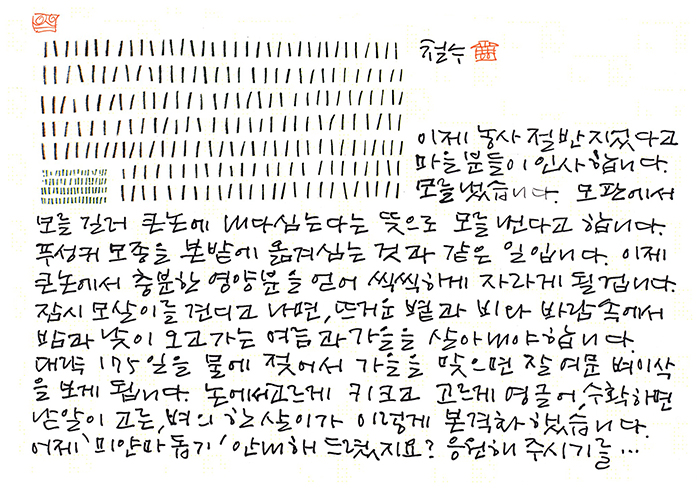 철수
이제 농사 절반 지었다고
마을분들이 인사합니다.
모를 냈습니다. 모판에서
모를 길러 큰논에 내다심는다는 뜻으로 모를 낸다고 합니다.
푸성귀 모종을 본밭에 옮겨심는 것과 같은 일입니다. 이제
큰논에서 충분한 영양분을 얻어 씩씩하게 자라게 될겁니다.
잠시 모살이를 견디고 나면, 뜨거운 볕과 비와 바람 속에서
밤과 낮이 오고가는 여름과 가을을 살아내야합니다.
대략 175일을 물에 젖어서 가을을 맞으면 잘 여문 벼이삭
을 보게 됩니다. 논에서 고르게 키 크고 고르게 영글어, 수확하면
낟알이 고른, 벼의 한살이가 이렇게 본격화했습니다.
어제 '미얀마 돕기' 안내해 드렸지요? 응원해 주시기를...